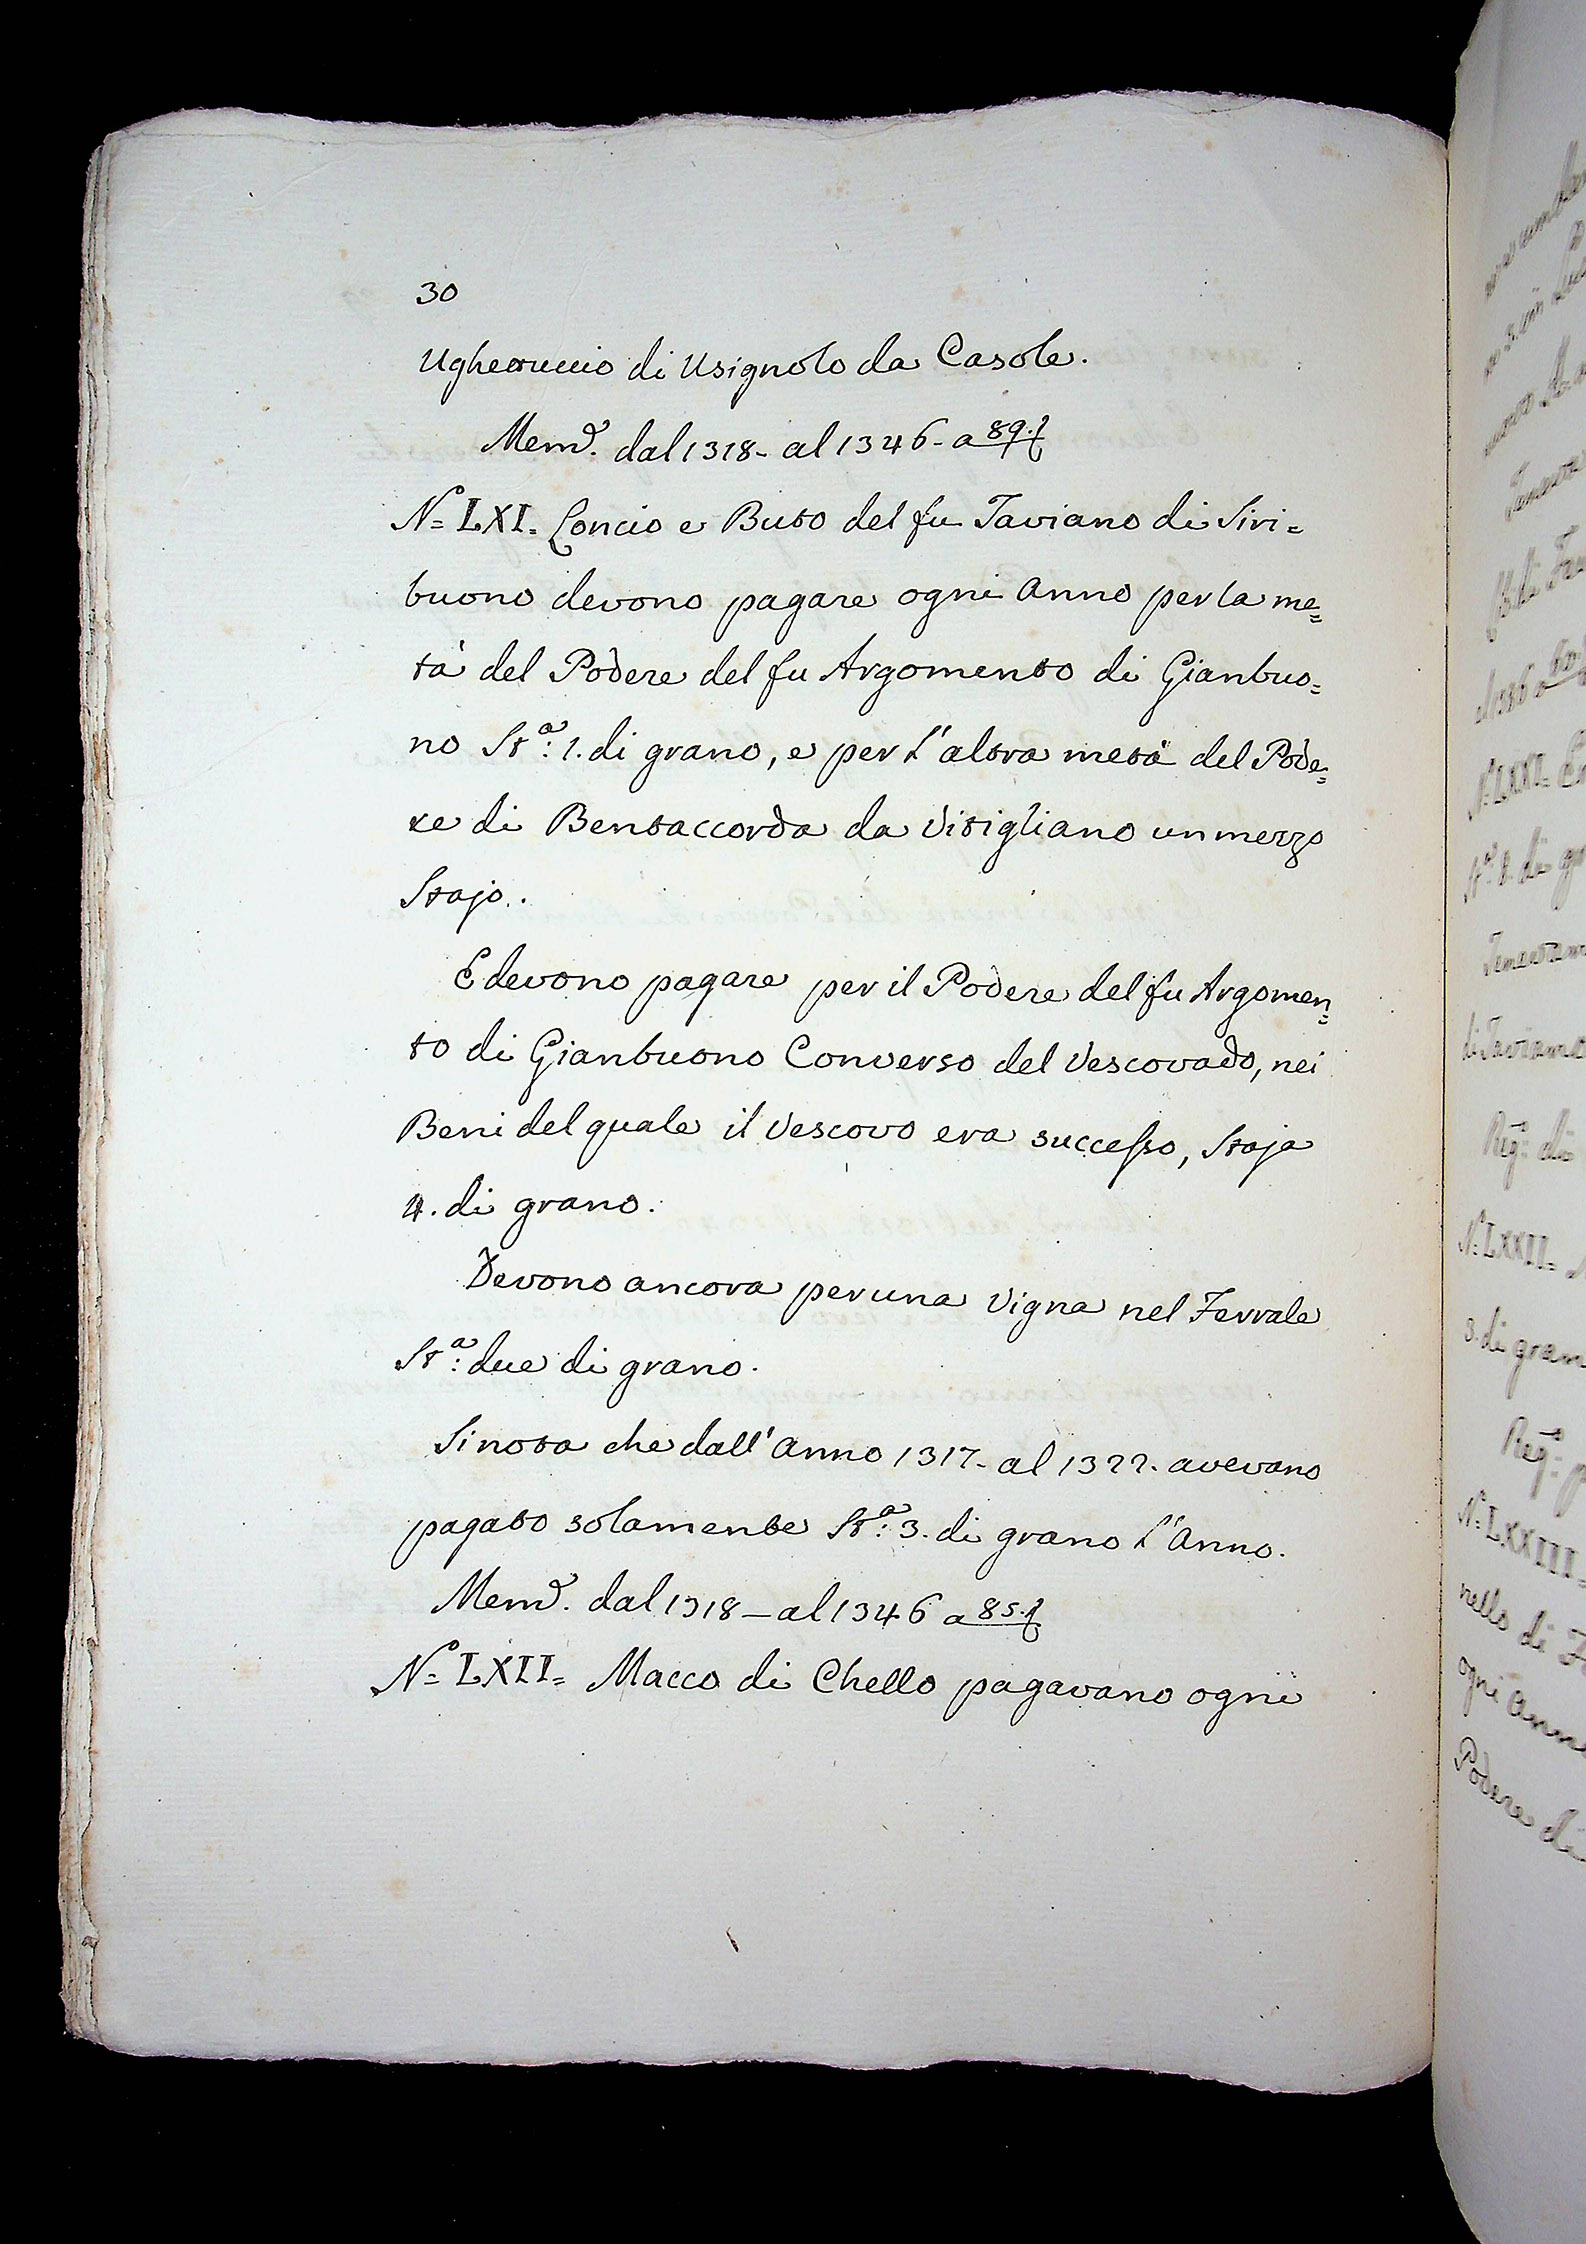 30
Ugheruccio di Usignolo da Casole.
Mem.ᵉ dal 1318- al 1346- a 89.
N.º LXI= Concio e Buto del fu Taviano di Siri=
buono devono pagare ogni anno per la me=
tà del Podere del fu Argomento di Gianbuo=
no St.ª: 1. di grano, e per l'altra metà del Pode=
re di Bentaccorda da Visigliano un mezzo
Stajo.
E devono pagare per il Podere del fu Argomen=
to di Gianbuono Converso del Vescovado, nei
Beni del quale il Vescovo era successo, Staja
4. di grano.
Devono ancora per una Vigna nel Ferrale
St.ª: due di grano.
Si nota che dall'anno 1317- al 1322. avevano
pagato solamente St.ª: 3. di grano l'anno.
Mem.ᵉ dal 1318 – al 1346 a 85.
N.º LXII= Macco di Chello pagavano ogni
Tenevano
N.º LXXI=
St.ª 8. di
di Taviano
Reg.º: di
N.º LXXII=
3. di grano
Reg.º:
N.º LXXIII=
nello di
ogni Anno
Podere di